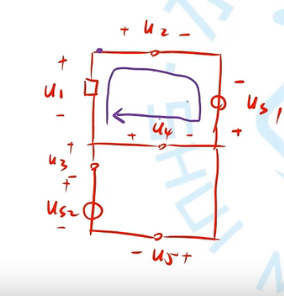 + u₂ -
+ -
u₁ us₁
- + u₄ - +
+
u₃
-
+
us₂
-
- u₅ +